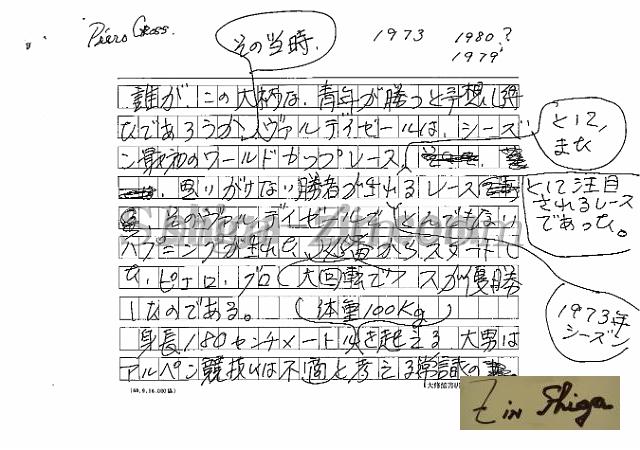 Piero Gross.
その当時.
1973 1980?
1979
誰が、この大柄な、青年が勝つと予想し得
たであろうか、ヴァルディゼールは、シーズ
ン最初のワールドカップレース、
として、
また
思いがけない勝者が生れるレース
として注目
されるレース
であった。
そのヴァルディゼールでとんでもない
ハプニングが生れた、 番からスタートし
た、ピエロ・グロ（大回転で）スが優勝
したのである。（体重100Kg）
1973年
シーズン
身長180センチメートルを超える大男は
アルペン競技には不適と考える常識の
Shiga-Zin.com
Z in Shiga